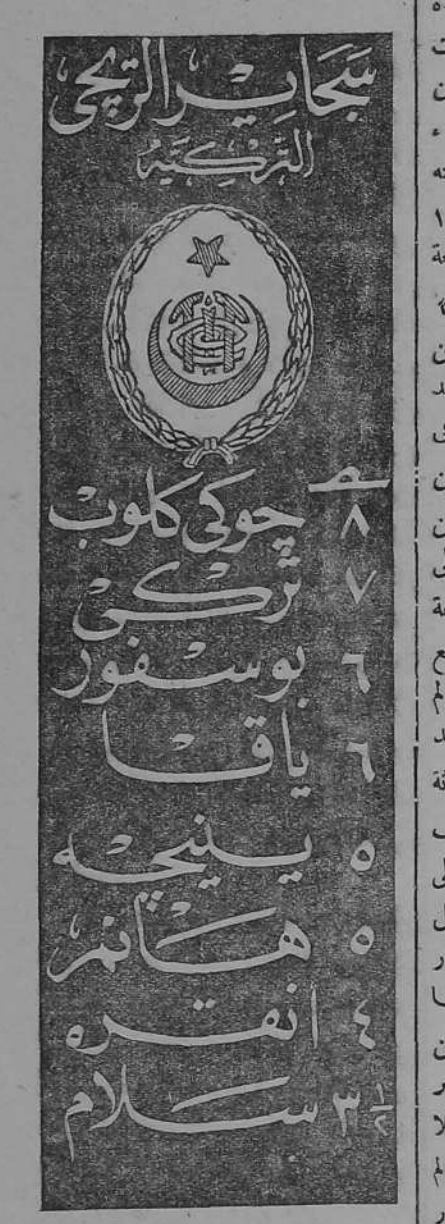 سَجَاير الريجى
التُركِيَّة
٨ چوكى كلوب
٧ تركى
٦ بوسفور
٦ ياقا
٥ ينيچه
٥ هانم
٤ انقره
٣ ١/٢ سلام